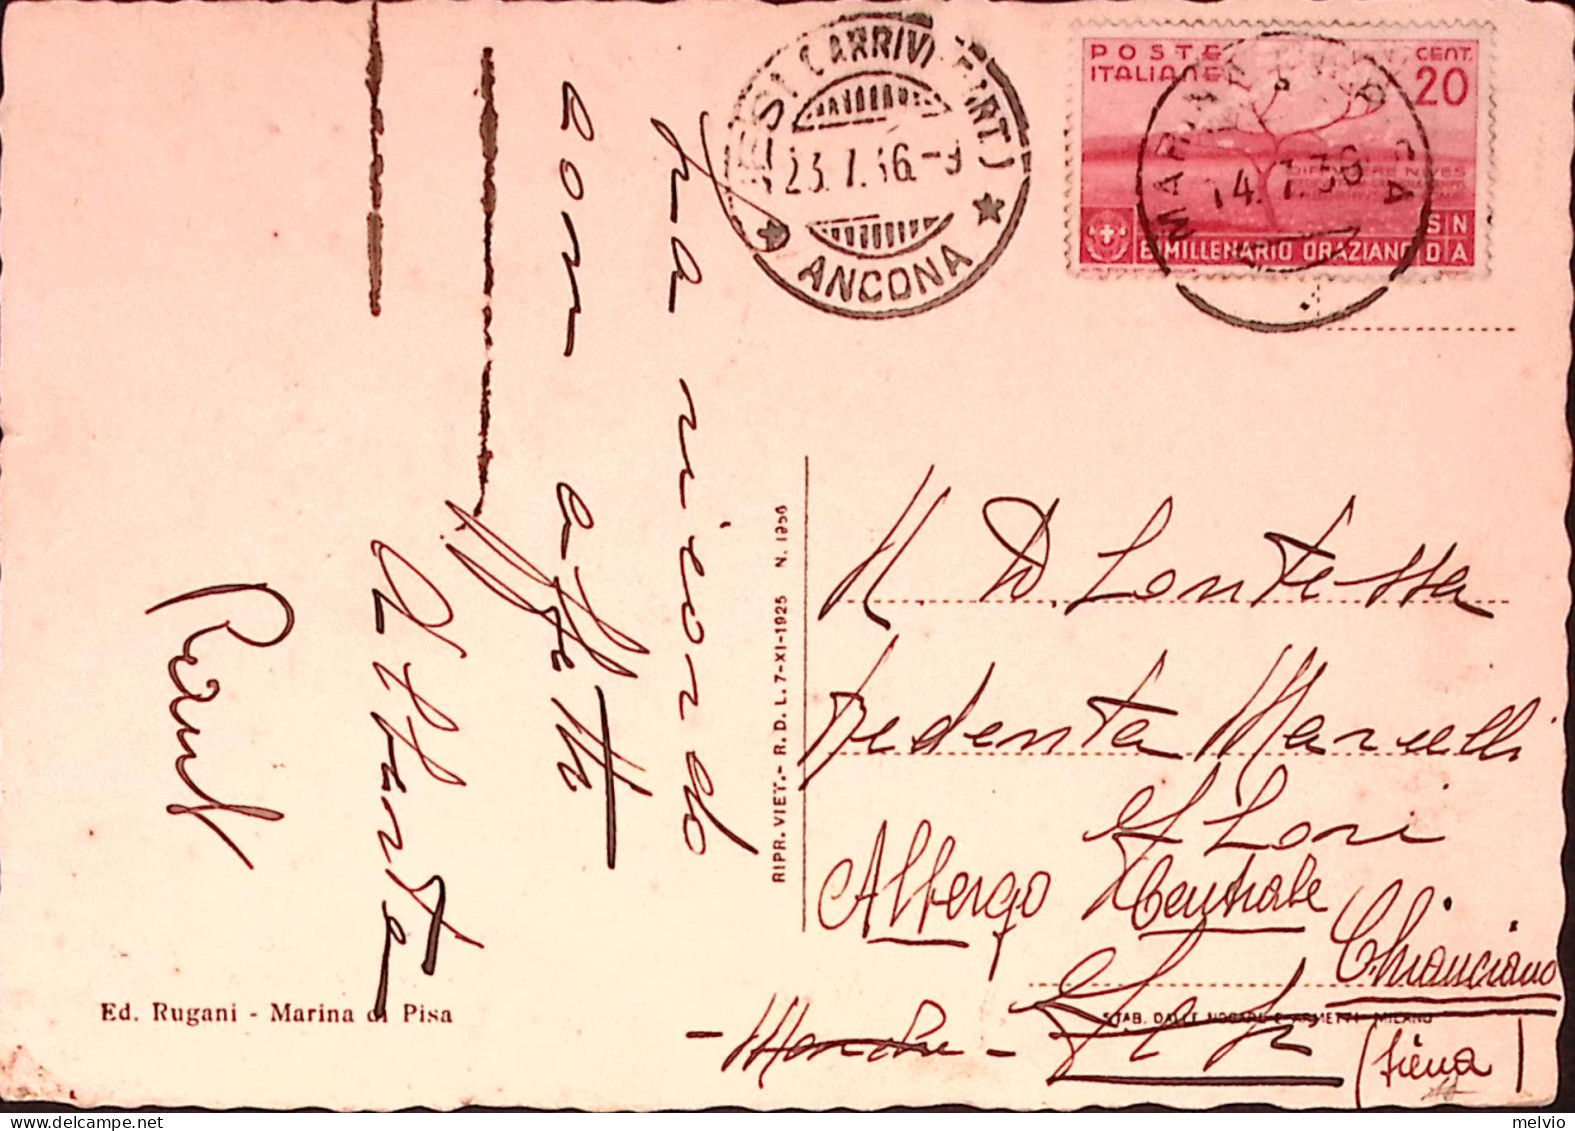 POSTE ITALIANE
CENT. 20
DIFFUGERE NIVES
BIMILLENARIO ORAZIANO
S N
D A
MARINA DI PISA
14.7.36
JESI (ARRIVI E PART.)
23.7.36.-9
ANCONA
un ricordo
con affetto
Alberta
N. D. Contessa
Redenta Marcelli
Flori
Albergo Centrale
Jesi
Chianciano
- Marche -
(Siena)
RIPR. VIET. - R. D. L. 7-XI-1925 N. 1956
Ed. Rugani - Marina di Pisa
STAB. DALLE NOGARE E ARMETTI - MILANO
melvio